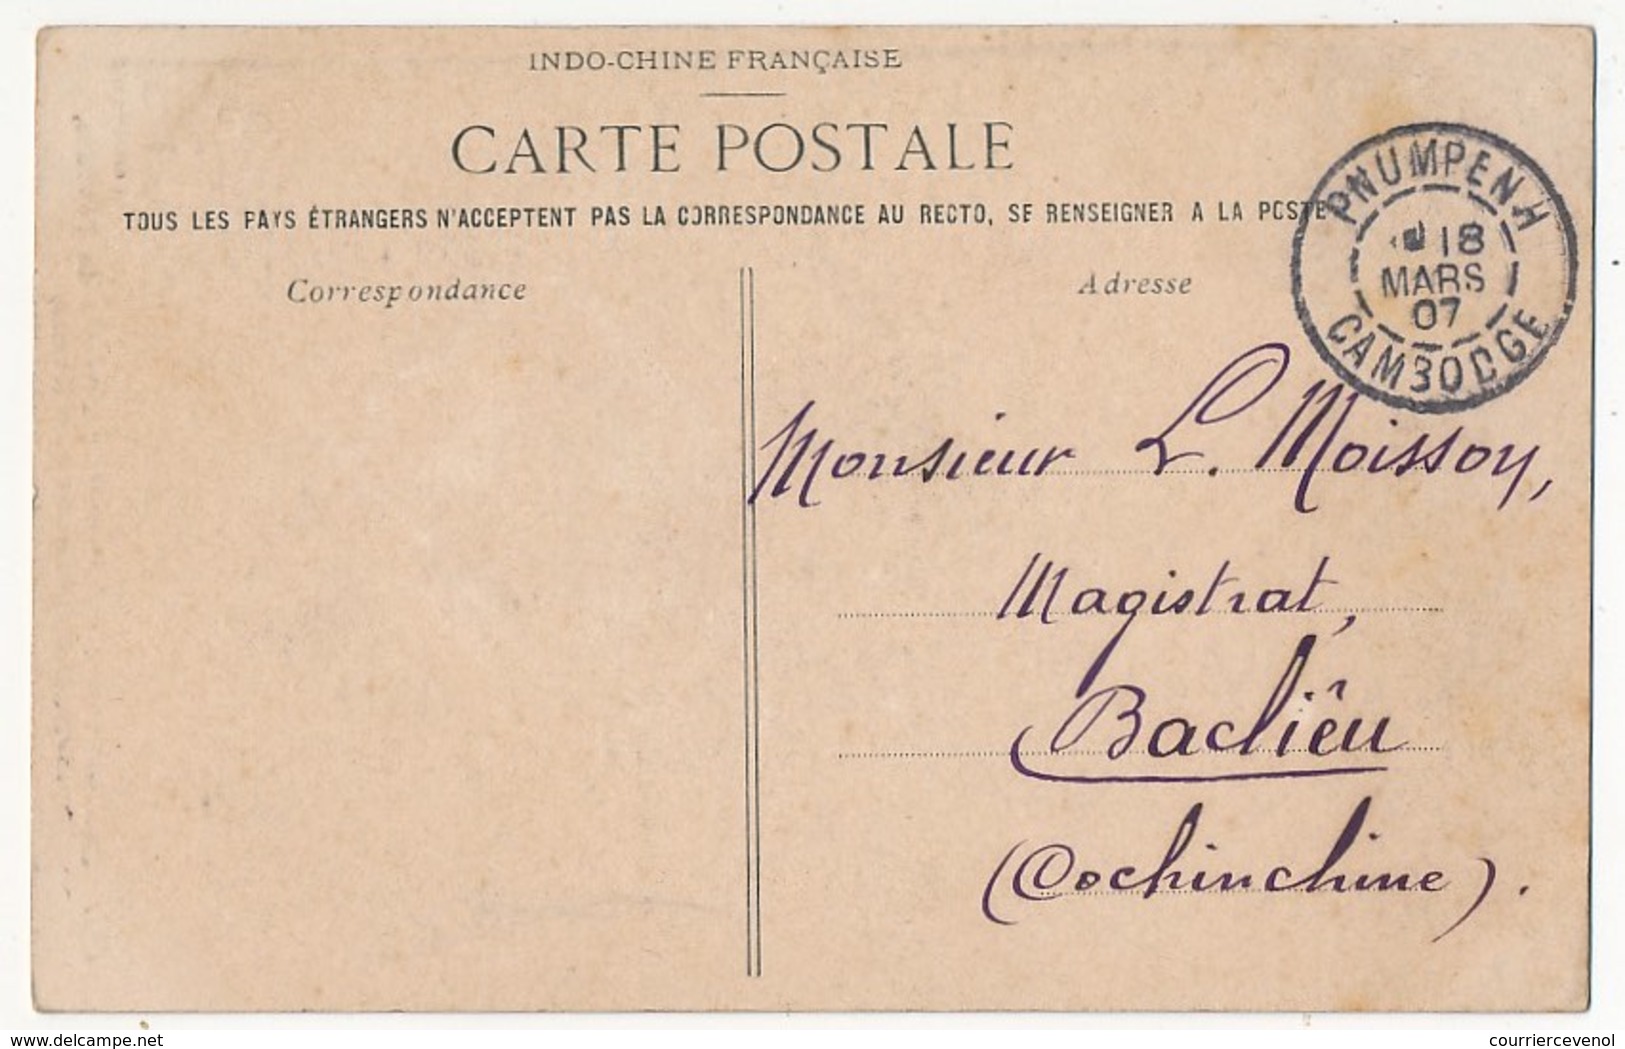 INDO-CHINE FRANÇAISE
CARTE POSTALE
TOUS LES PAYS ÉTRANGERS N'ACCEPTENT PAS LA CORRESPONDANCE AU RECTO, SE RENSEIGNER A LA POSTE
Correspondance
Adresse
PNUMPENH
18
MARS
07
CAMBODGE
Monsieur L. Moissoy,
Magistrat,
Bacliêu
(Cochinchine).
www.delcampe.net
courriercevenol